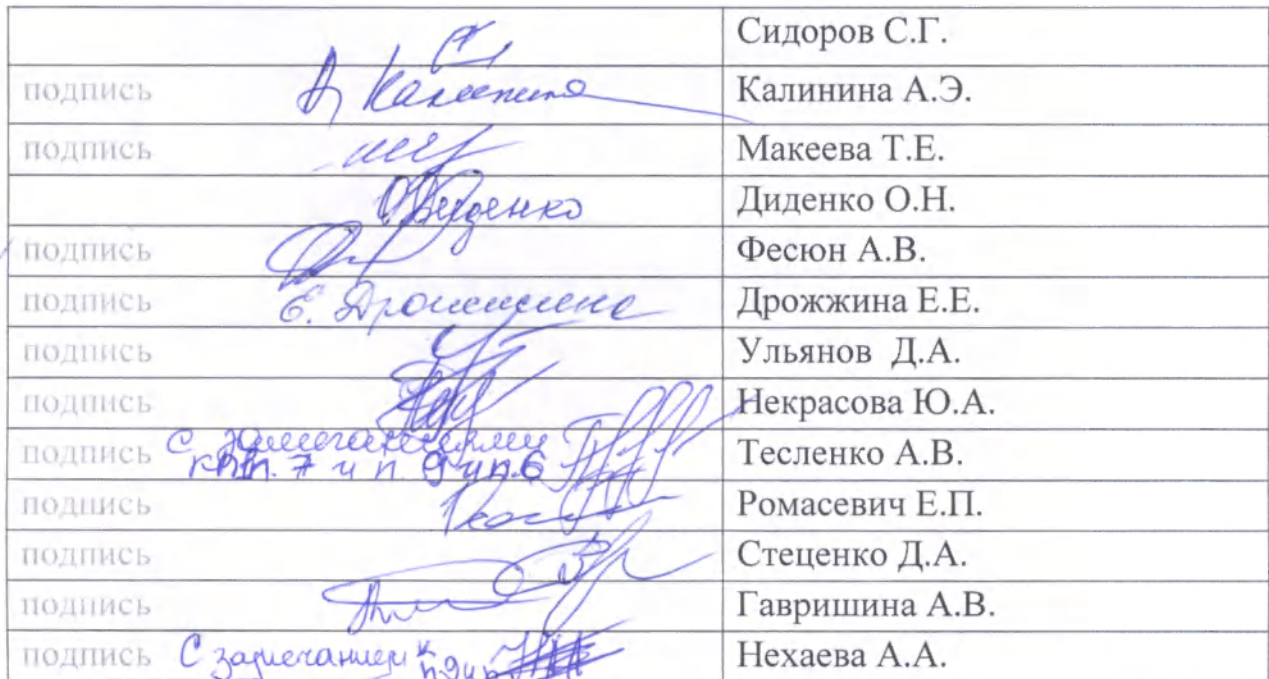 Сидоров С.Г.
подпись А Калинина Калинина А.Э.
подпись Макеева Т.Е.
О.Диденко Диденко О.Н.
подпись Фесюн А.В.
подпись Е. Дрожжина Дрожжина Е.Е.
подпись Ульянов Д.А.
подпись Некрасова Ю.А.
подпись С замечаниями Тесленко А.В.
7 и п. 9 и п.6
подпись Ромасевич Е.П.
подпись Стеценко Д.А.
подпись Гавришина А.В.
подпись С замечанием к Нехаева А.А.
п.9и